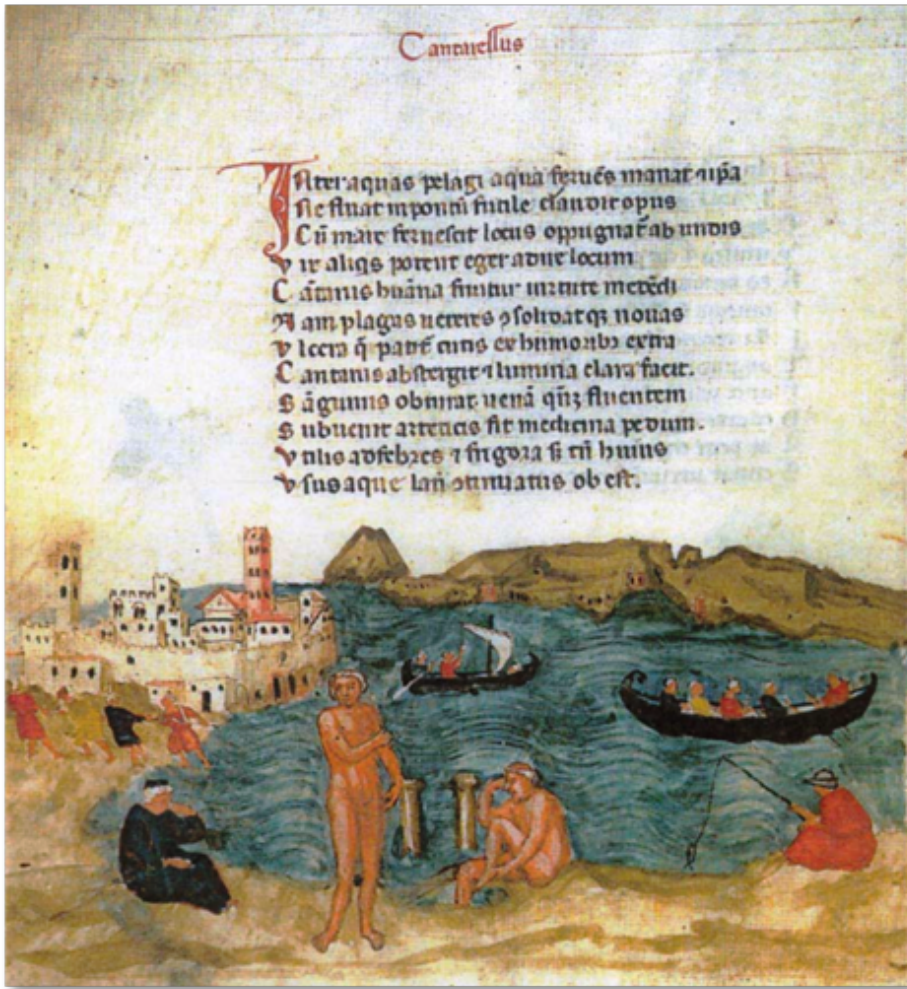 Cantarellus
Inter aquas pelagi aqua feruēs manat ⁊ ip̄a
Ne fluat in pontū fictile claudit opus
Cū mare feruescit locus oppugnat᷑ ab undis
Vix aliq̇s poterit eger adire locum
huāna uirtute
Nam plagas ueteres ꝯsolidat qꝫ nouas
Vlcera q̄ patēt cutis ex humoribꝫ extra
abstergit ⁊ lumina clara facit.
Sāguinis obturat uenā fluentem
Subuenit arteticis fit medicina pedum.
Vtilis ad febres ⁊ frigora tn̄ huius
Vsus aque obest.